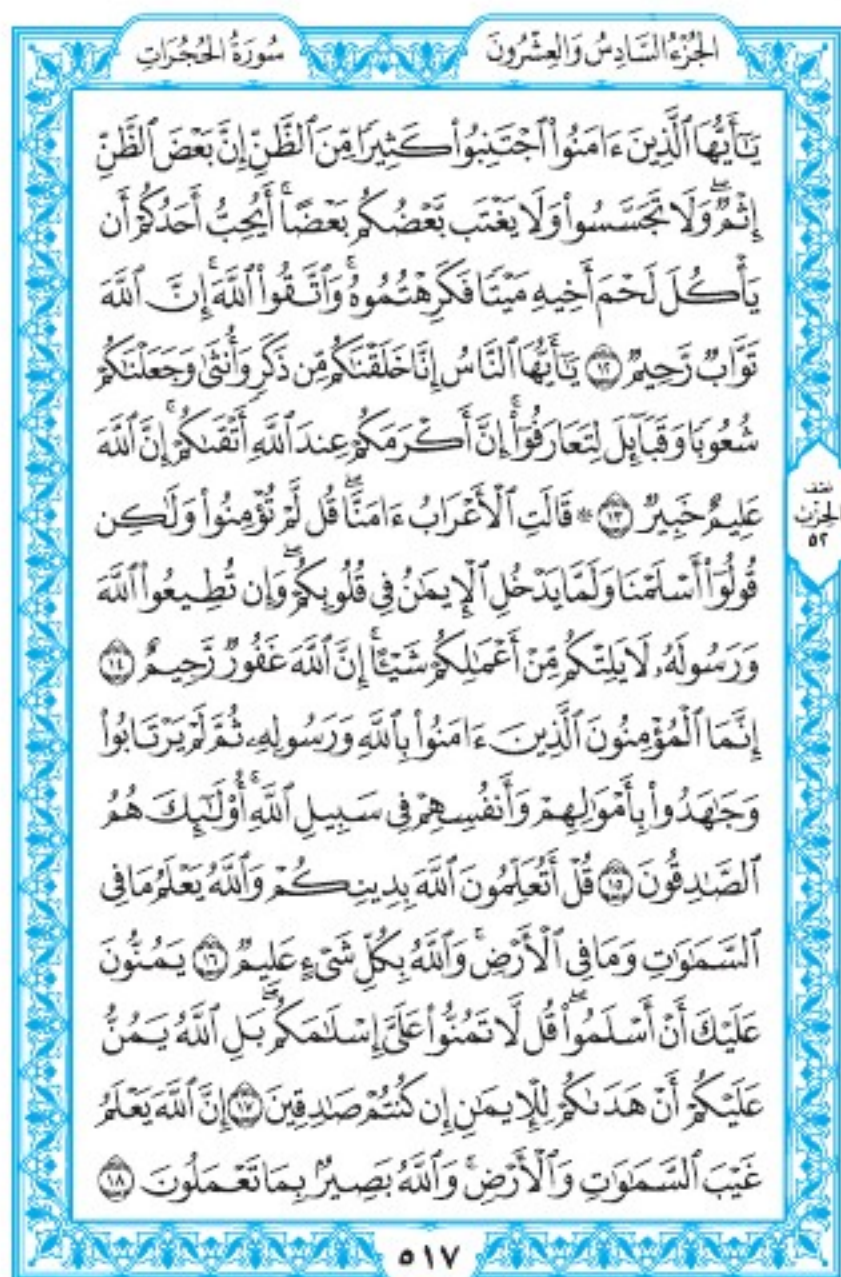 الجُزْءُ السَّادِسُ وَالعِشْرُونَ
سُورَةُ الحُجُرَاتِ
يَٰٓأَيُّهَا ٱلَّذِينَ ءَامَنُوا۟ ٱجْتَنِبُوا۟ كَثِيرًا مِّنَ ٱلظَّنِّ إِنَّ بَعْضَ ٱلظَّنِّ
إِثْمٌۖ وَلَا تَجَسَّسُوا۟ وَلَا يَغْتَب بَّعْضُكُم بَعْضًاۚ أَيُحِبُّ أَحَدُكُمْ أَن
يَأْكُلَ لَحْمَ أَخِيهِ مَيْتًا فَكَرِهْتُمُوهُۚ وَٱتَّقُوا۟ ٱللَّهَۚ إِنَّ ٱللَّهَ
تَوَّابٌ رَّحِيمٌ ١٢ يَٰٓأَيُّهَا ٱلنَّاسُ إِنَّا خَلَقْنَٰكُم مِّن ذَكَرٍ وَأُنثَىٰ وَجَعَلْنَٰكُمْ
شُعُوبًا وَقَبَآئِلَ لِتَعَارَفُوٓا۟ۚ إِنَّ أَكْرَمَكُمْ عِندَ ٱللَّهِ أَتْقَىٰكُمْۚ إِنَّ ٱللَّهَ
عَلِيمٌ خَبِيرٌ ١٣ ۞ قَالَتِ ٱلْأَعْرَابُ ءَامَنَّاۖ قُل لَّمْ تُؤْمِنُوا۟ وَلَٰكِن
قُولُوٓا۟ أَسْلَمْنَا وَلَمَّا يَدْخُلِ ٱلْإِيمَٰنُ فِى قُلُوبِكُمْۖ وَإِن تُطِيعُوا۟ ٱللَّهَ
وَرَسُولَهُۥ لَا يَلِتْكُم مِّنْ أَعْمَٰلِكُمْ شَيْـًٔاۚ إِنَّ ٱللَّهَ غَفُورٌ رَّحِيمٌ ١٤
إِنَّمَا ٱلْمُؤْمِنُونَ ٱلَّذِينَ ءَامَنُوا۟ بِٱللَّهِ وَرَسُولِهِۦ ثُمَّ لَمْ يَرْتَابُوا۟
وَجَٰهَدُوا۟ بِأَمْوَٰلِهِمْ وَأَنفُسِهِمْ فِى سَبِيلِ ٱللَّهِۚ أُو۟لَٰٓئِكَ هُمُ
ٱلصَّٰدِقُونَ ١٥ قُلْ أَتُعَلِّمُونَ ٱللَّهَ بِدِينِكُمْ وَٱللَّهُ يَعْلَمُ مَا فِى
ٱلسَّمَٰوَٰتِ وَمَا فِى ٱلْأَرْضِۚ وَٱللَّهُ بِكُلِّ شَىْءٍ عَلِيمٌ ١٦ يَمُنُّونَ
عَلَيْكَ أَنْ أَسْلَمُوا۟ۖ قُل لَّا تَمُنُّوا۟ عَلَىَّ إِسْلَٰمَكُمۖ بَلِ ٱللَّهُ يَمُنُّ
عَلَيْكُمْ أَنْ هَدَىٰكُمْ لِلْإِيمَٰنِ إِن كُنتُمْ صَٰدِقِينَ ١٧ إِنَّ ٱللَّهَ يَعْلَمُ
غَيْبَ ٱلسَّمَٰوَٰتِ وَٱلْأَرْضِۚ وَٱللَّهُ بَصِيرٌۢ بِمَا تَعْمَلُونَ ١٨
نصف
الحِزْبِ
٥٢
٥١٧